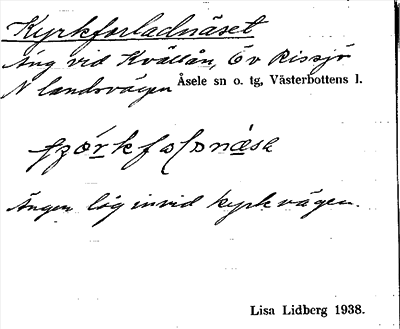 Kyrkforladnäset
Äng vid Kvällån, Öv Rissjö
N landsvägen Åsele sn o. tg, Västerbottens l.
Ängen låg invid kyrkvägen.
Lisa Lidberg 1938.